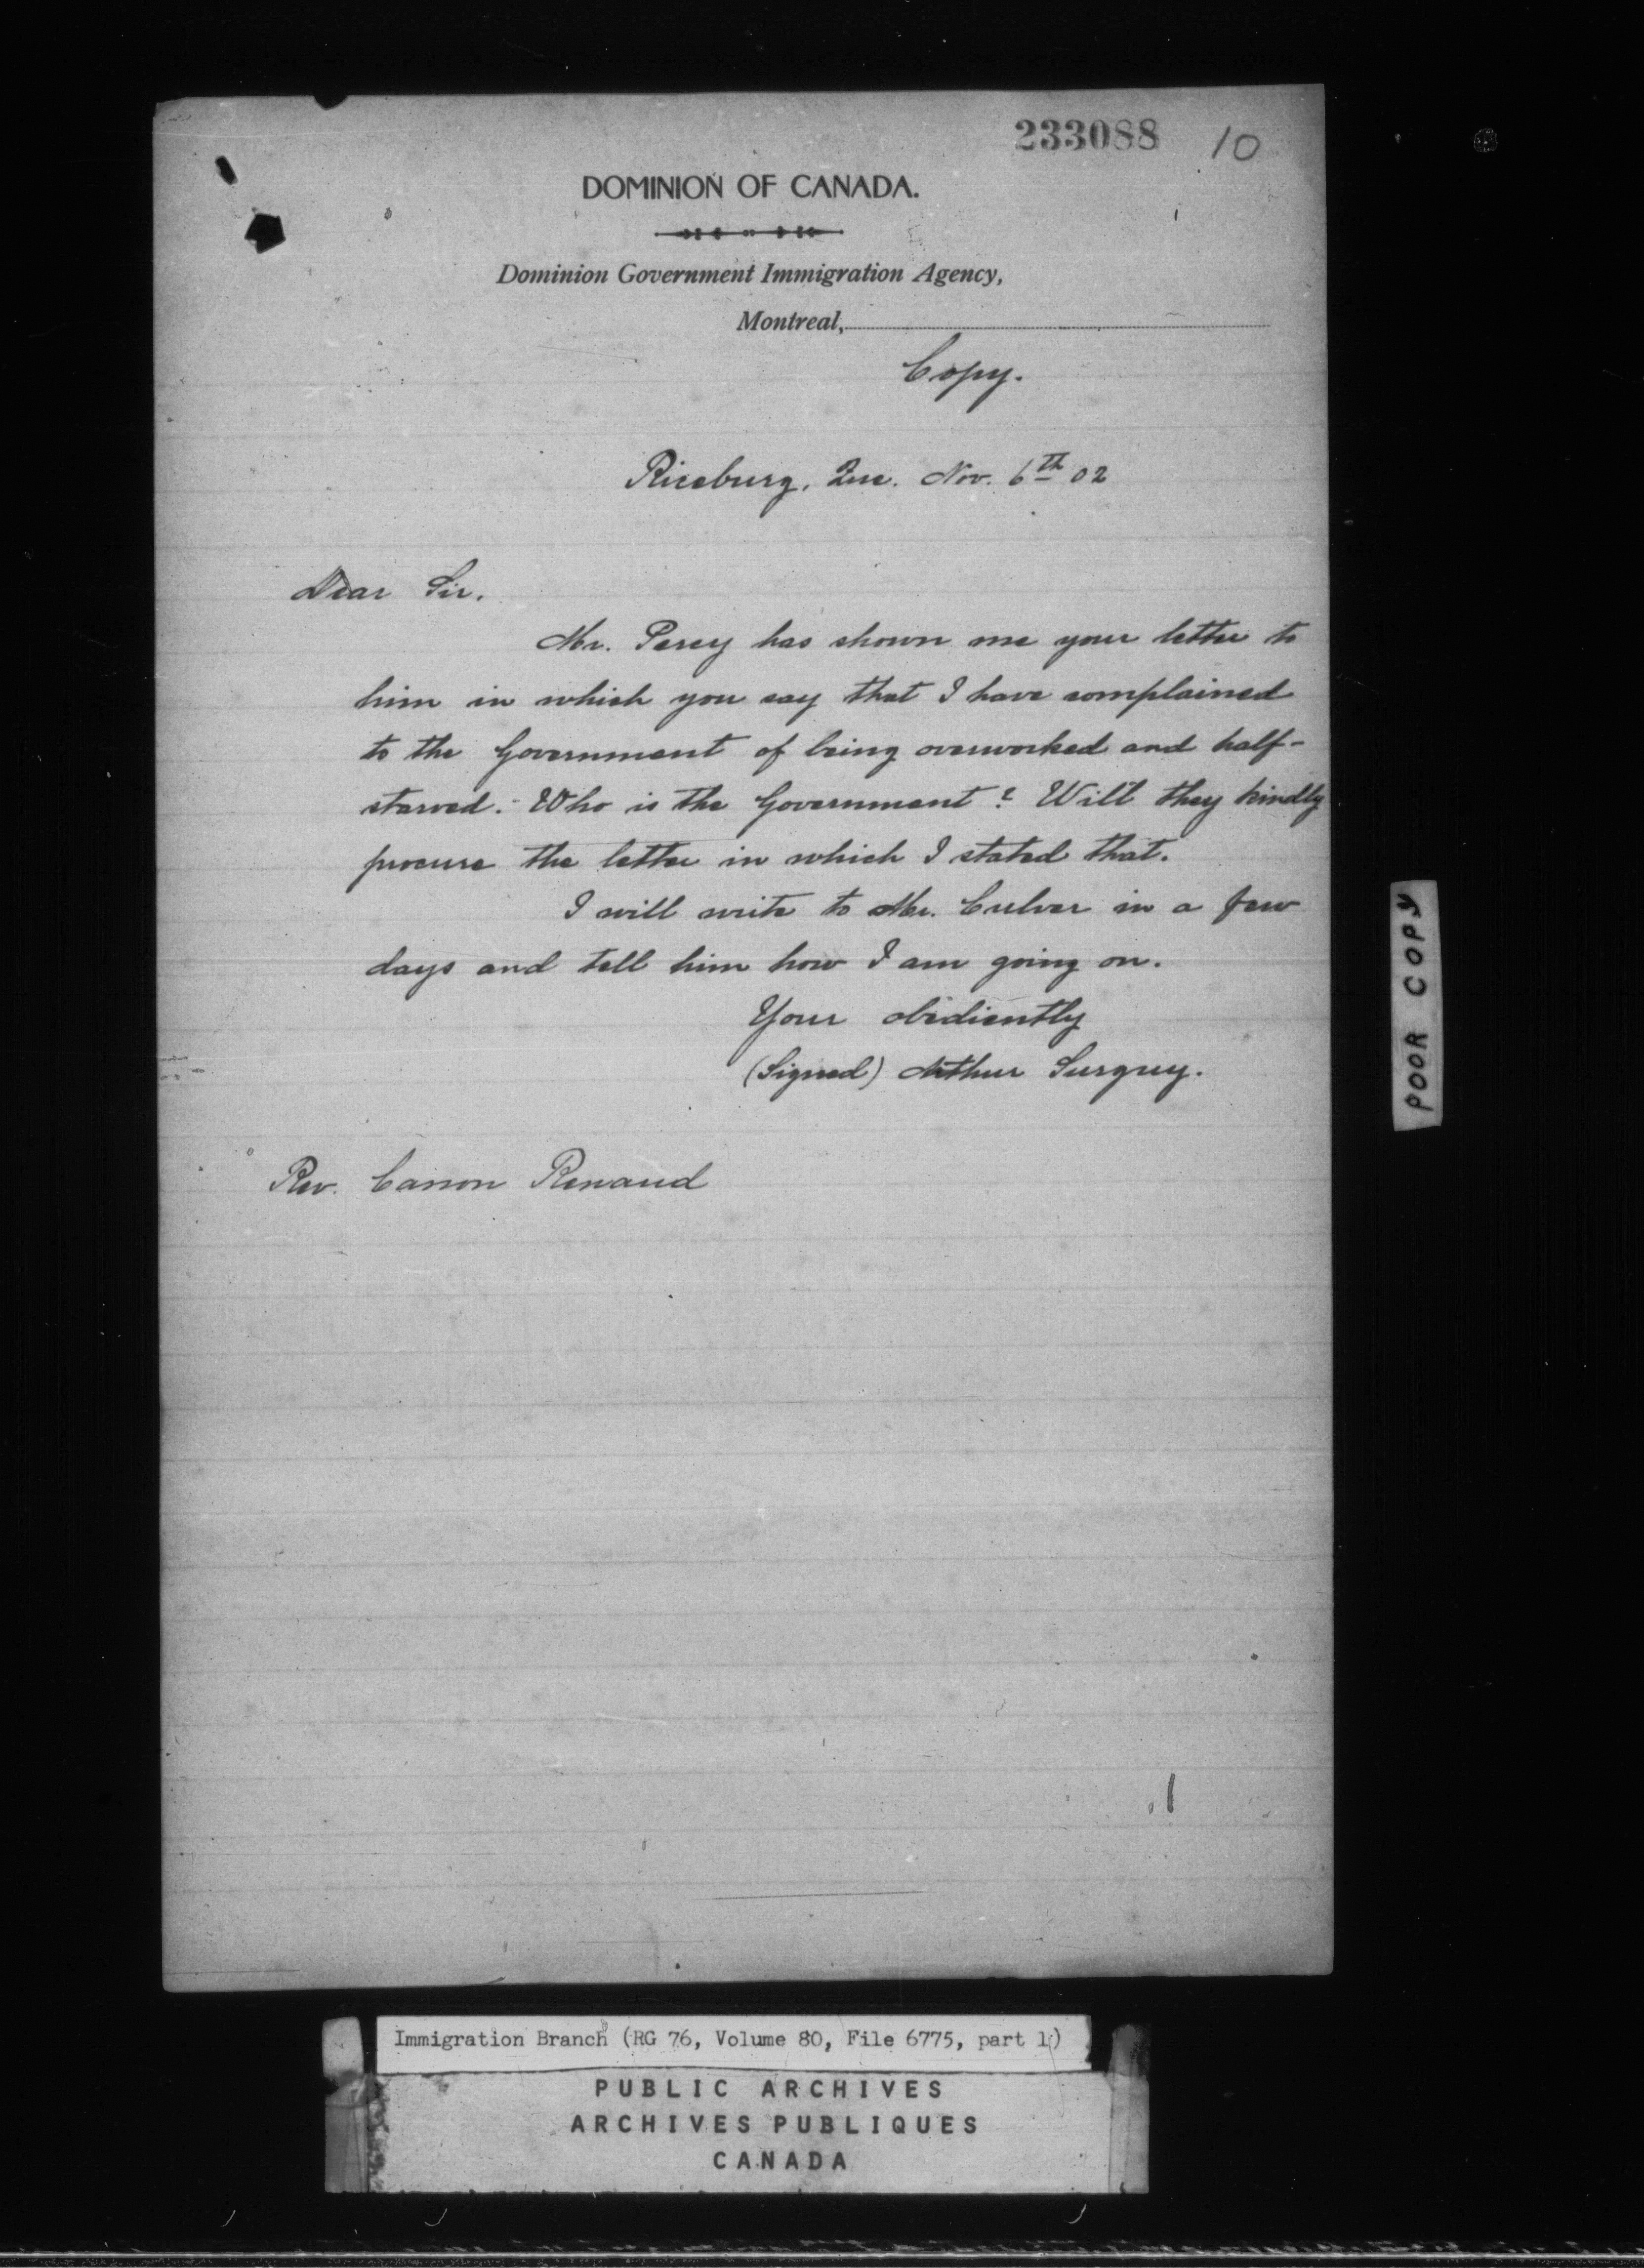 233088 10
DOMINION OF CANADA.
Dominion Government Immigration Agency,
Montreal,
Copy.
Riceburg, Que. Nov. 6th 02
Dear Sir.
Mr. Percy has shown me your letter to
him in which you say that I have complained
to the Government of being overworked and half-
starved. Who is the Government? Will they kindly
procure the letter in which I stated that.
I will write to Mr. Culver in a few
days and tell him how I am going on.
Your obediently
(Signed) Arthur Surguy.
Rev. Canon Renaud
POOR COPY
Immigration Branch (RG 76, Volume 80, File 6775, part 1)
PUBLIC ARCHIVES
ARCHIVES PUBLIQUES
CANADA